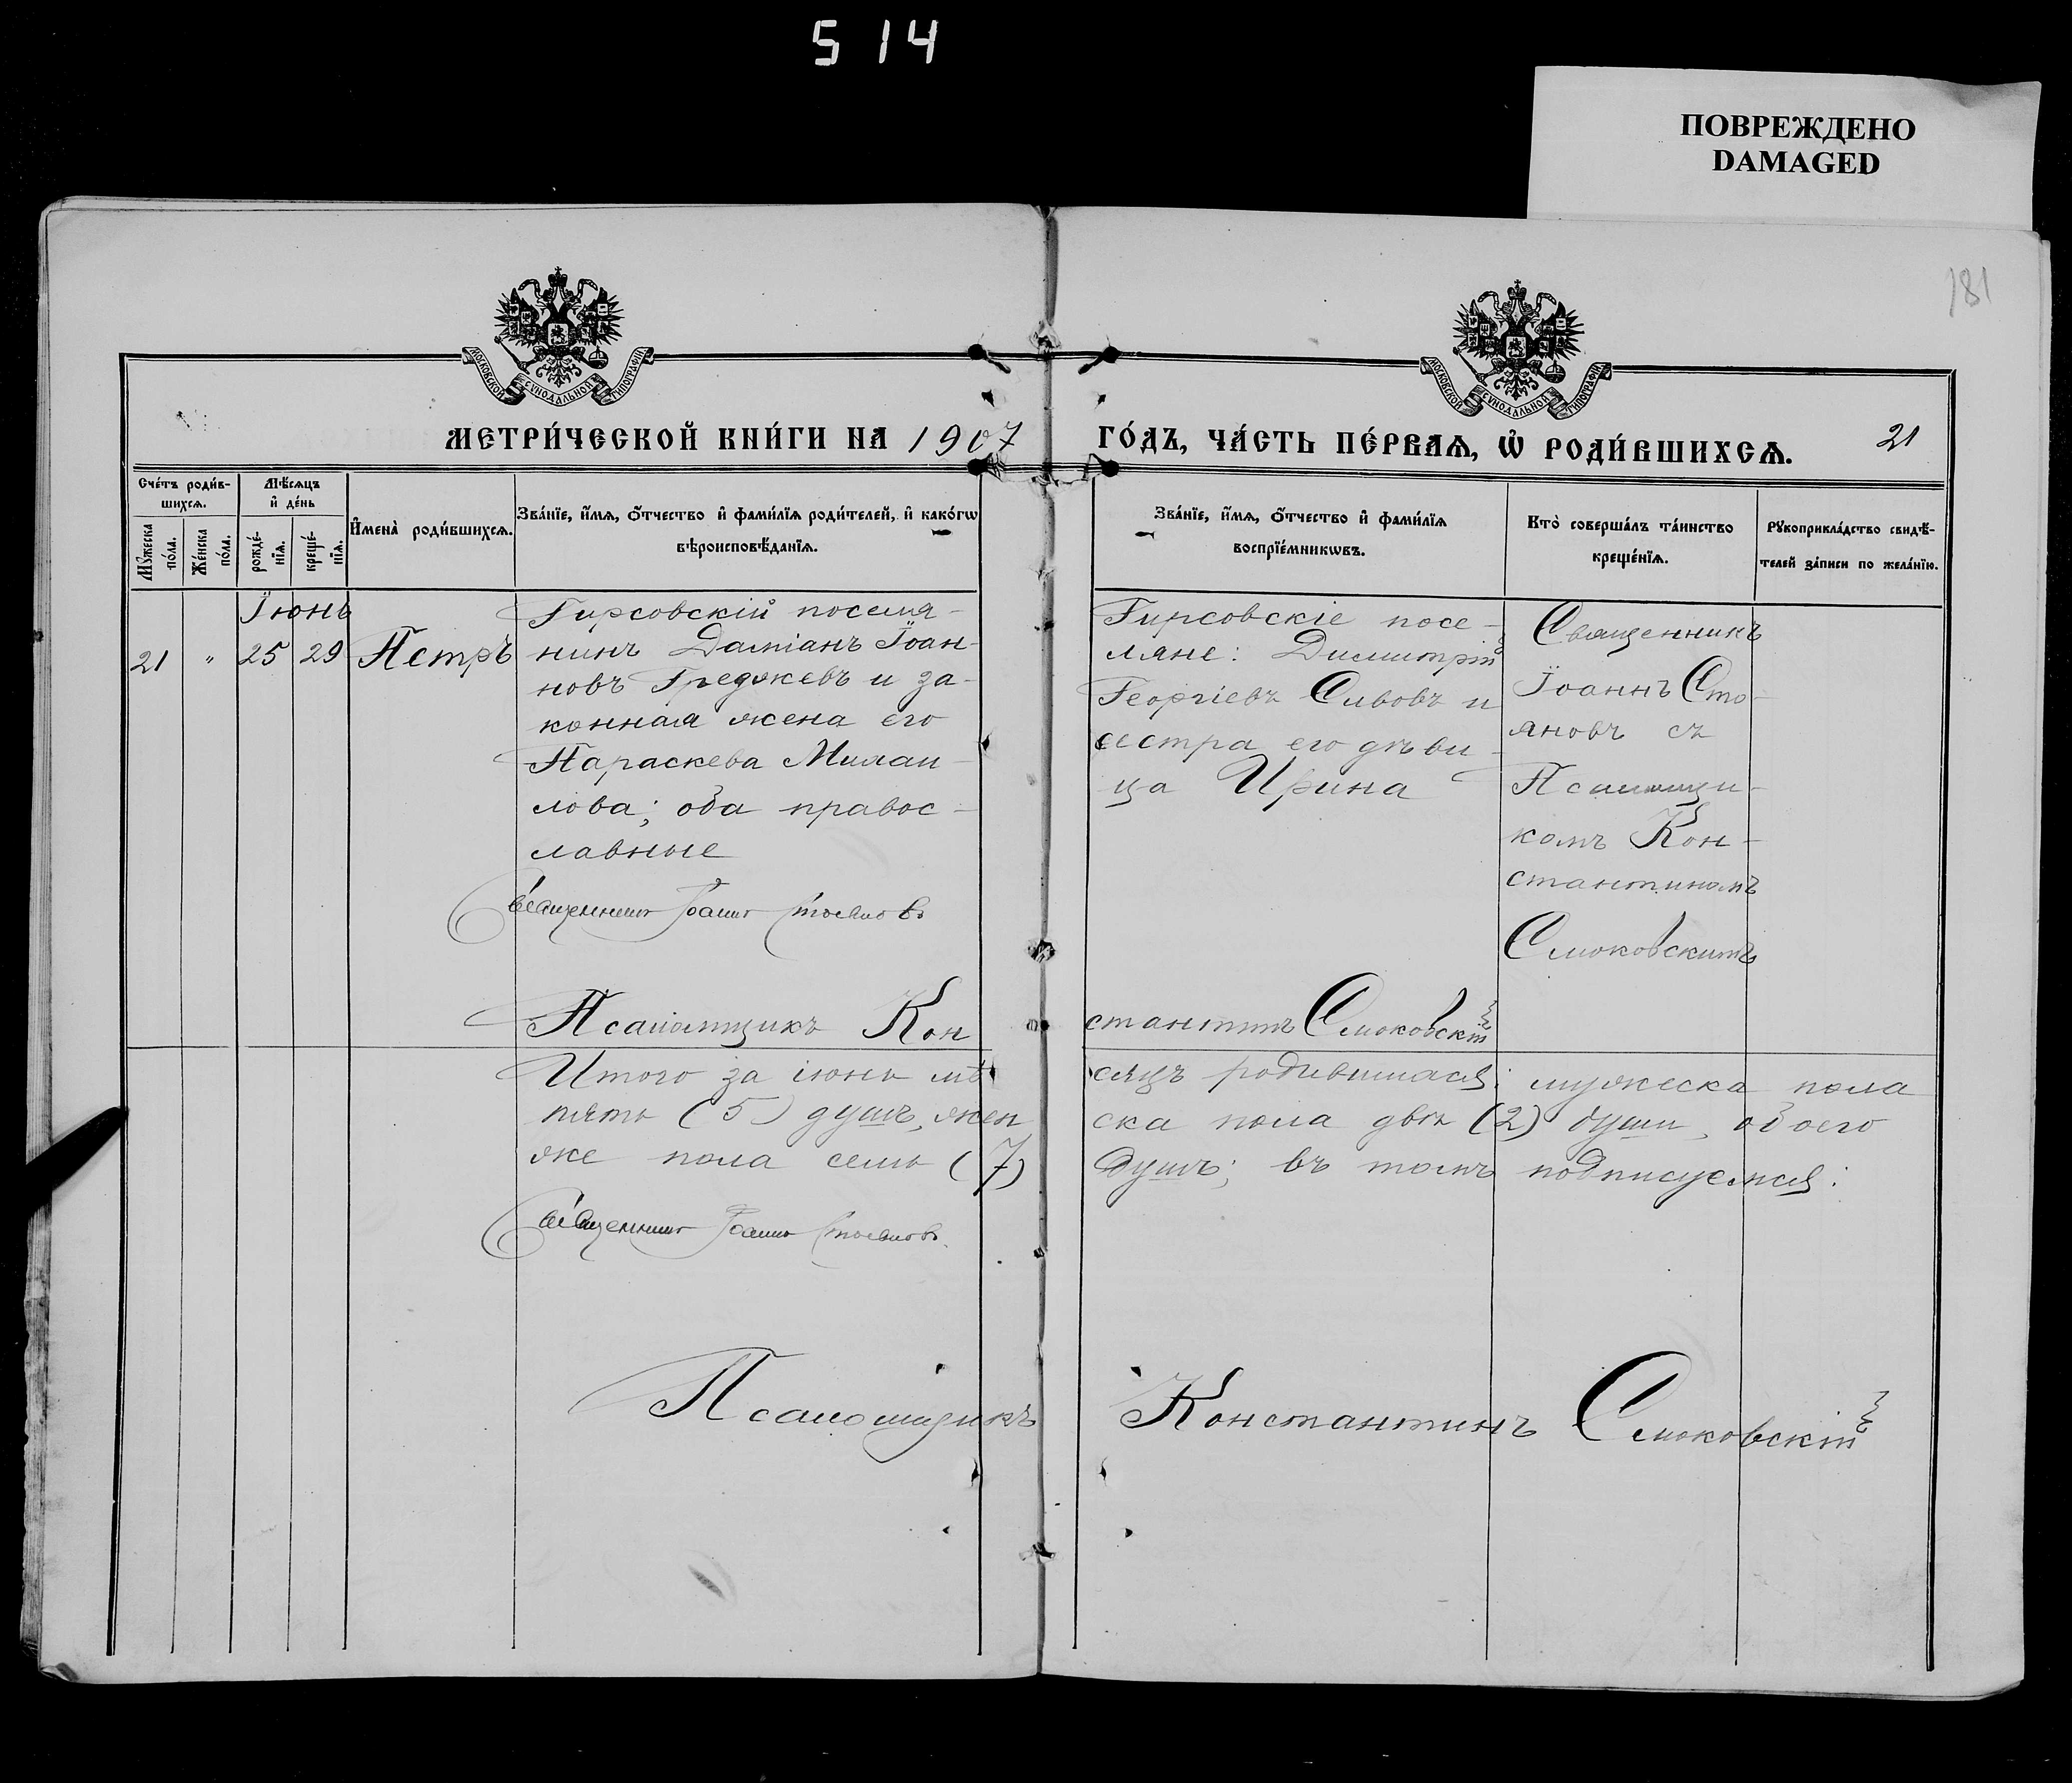 514
ПОВРЕЖДЕНО
DAMAGED
181
МОСКОВСКОЙ СѴНОДАЛЬНОЙ ТИПОГРАФІИ
МОСКОВСКОЙ СѴНОДАЛЬНОЙ ТИПОГРАФІИ
МЕТРИ́ЧЕСКОЙ КНИ́ГИ НА 1907
ГО́ДЪ, ЧА́СТЬ ПЕ́РВАѦ, Ѡ҆ РОДИ́ВШИХСѦ.
21
Сче́тъ роди́в-
шихсѧ.
Мѣ́сѧцъ
и҆ де́нь
Мꙋ́жеска
по́ла.
Же́нска
по́ла.
рожде́-
нїѧ.
креще́-
нїѧ.
И҆мена̀ роди́вшихсѧ.
Зва́нїе, и҆́мѧ, ѻ҆́тчество и҆ фами́лїѧ роди́телей, и҆ како́гѡ
вѣроисповѣ́данїѧ.
Зва́нїе, и҆́мѧ, ѻ҆́тчество и҆ фами́лїѧ
воспрїе́мникѡвъ.
Кто̀ соверша́лъ та́инство
креще́нїѧ.
Рꙋкоприкла́дство свидѣ́-
телей за́писи по жела́нїю.
Іюнь
21 " 25 29 Петръ
Гирсовскій поселя-
нинъ Даміанъ Іоан-
новъ Греджевъ и за-
конная жена его
Параскева Михаи-
лова; оба правос-
лавные
Священникъ Іоаннъ Стояновъ
Псаломщикъ Кон
Гирсовскіе посе-
ляне: Димитрій
Георгіевъ Сивовъ и
сестра его дѣви-
ца Ирина
Священникъ
Іоаннъ Сто-
яновъ съ
Псаломщи-
комъ Кон-
стантиномъ
Смоковскимъ
стантинъ Смоковскій
Итого за іюнь мѣ
сяцъ родившихся: мужеска пола
пять (5) душъ, жен
ска пола двѣ (2) души, обоего
же пола семь (7)
душъ; въ томъ подписуемся:
Священникъ Іоаннъ Стояновъ.
Псаломщикъ Константинъ Смоковскій